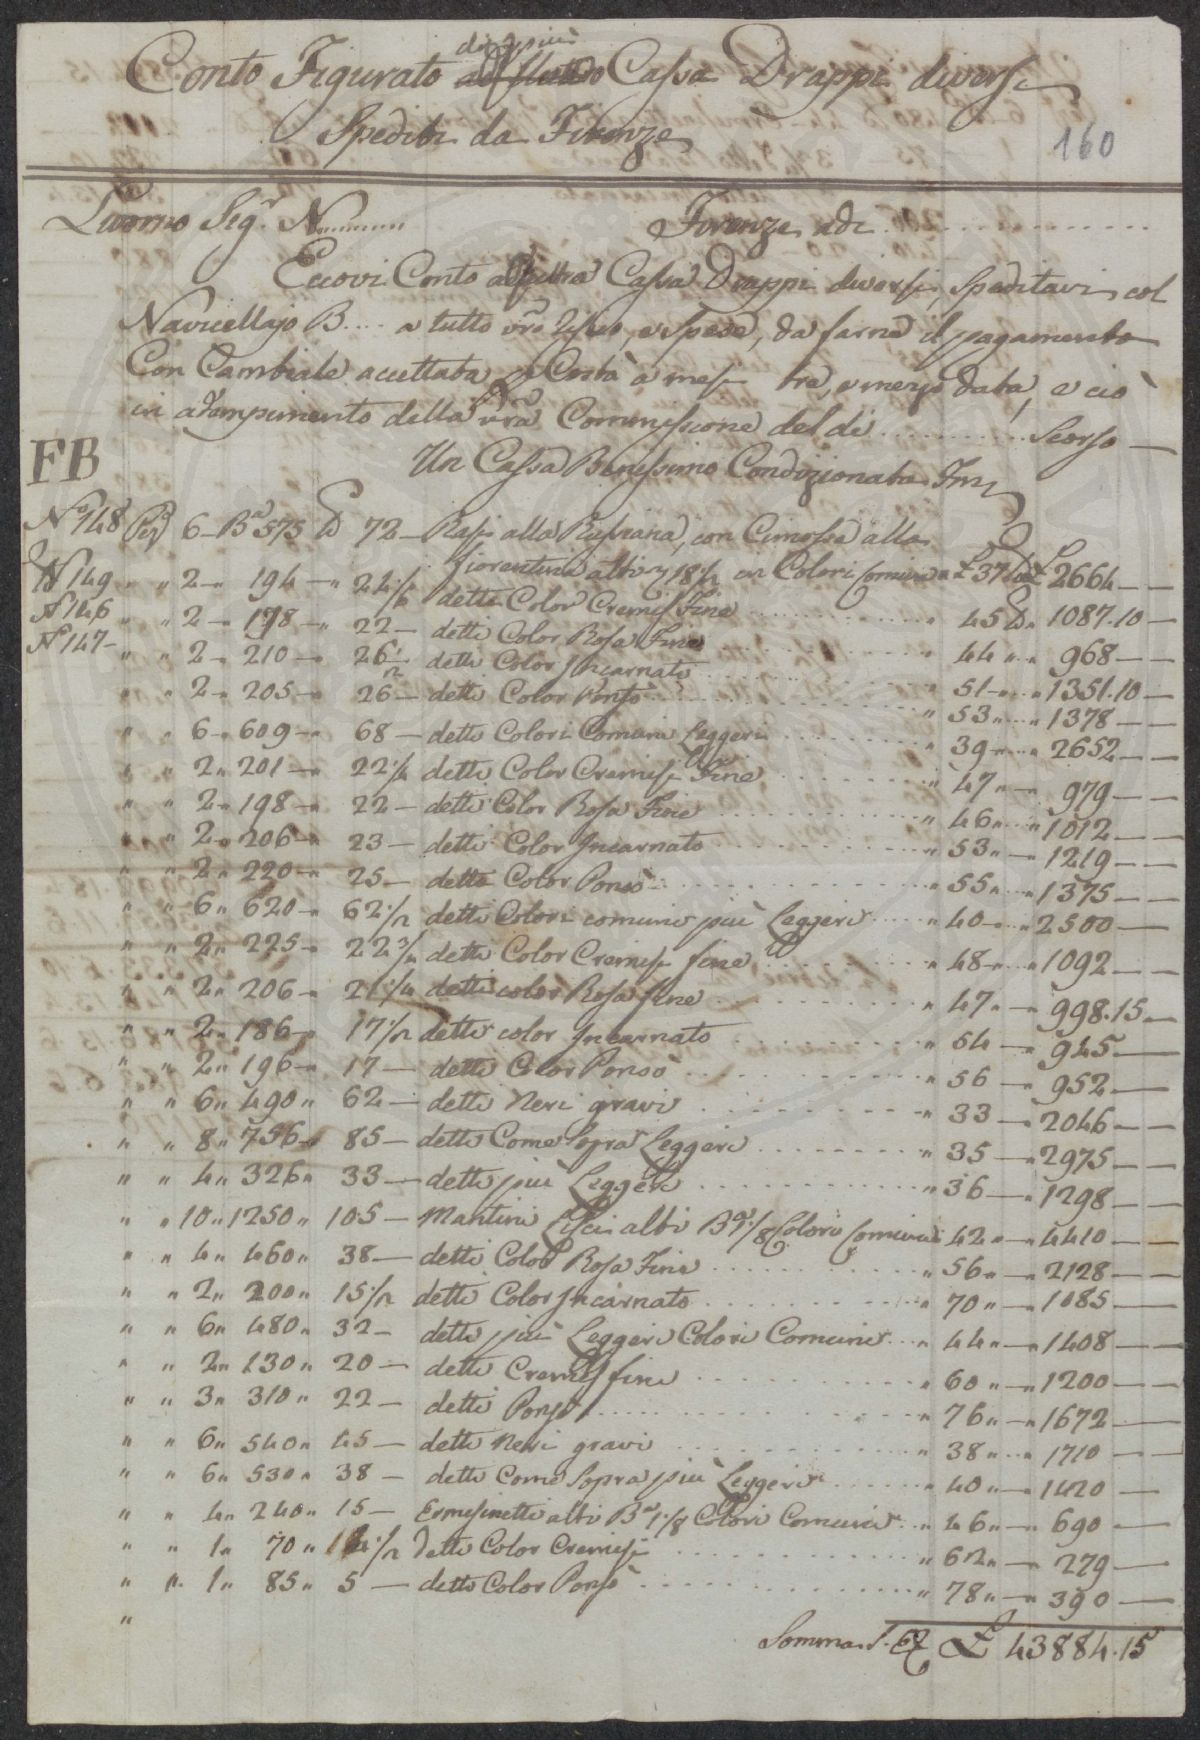 di più
Conto Figurato Cassa Drappi diversi
Spediti da Firenze
160
Livorno Sig.r N........ Firenze adi ..............
Eccovi Conto Cassa Drappi diversi, speditavi col
Navicellajo B.... a tutto vro e Spese, da farne il pagamento
Con Cambiale accettata p Costà a mesi tre, e mezzo data, e ciò
in adempimento della vra Commissione del di .......... Scorso —
FB
Un Cassa Benissimo Condizionata
No 148 6 — Ba 575 72 — Rasi alla Russiana, con Cimossa alla
fiorentina alti 18/n in Colori Comuni a £ 37 £ 2664 — —
No 149 " " 2 — 194 — detti Color Cremisi Fine " 45 1087.10 —
No 146 " " 2 — 198 — " 22 — detti Color Rosa Fine " 44 " " 968 — —
No 147 — " " 2 — 210 — 26 1/2 detti Color Incarnato " 51 — " 1351.10 —
" " 2 " 205 — " 26 — detti Color Ponsò " 53 " " 1378 — —
" " 6 " 609 — " 68 — detti Colori Comuni Leggeri " 39 — " 2652 — —
" " 2 " 201 — " detti Color Cremisi Fine " 47 " — 979 — —
" " 2 " 198 — " 22 — detti Color Rosa Fine " 46 " " 1012 — —
" " 2 " 206 — " 23 — detti Color Incarnato " 53 " — 1219 — —
" " 2 " 220 — " 25 — detti Color Ponsò " 55 " " 1375 — —
" " 6 " 620 — " 62 1/2 detti Colori comuni più Leggeri " 40 — " 2500 — —
" " 2 " 225 — " 22 3/4 detti Color Cremisi fine " 48 — " 1092 — —
" " 2 " 206 — " 21 1/4 detti color Rosa fine " 47 " — 998.15 —
" " 2 " 186 — " 17 1/2 detti color Incarnato " 54 — " 945 —
" " 2 " 196 — " 17 — detti Color Ponsò " 56 — " 952 —
" " 6 " 490 " 62 — detti Neri gravi " 33 — " 2046 — —
" " 8 " 756 — " 85 — detti Come Sopra Leggeri " 35 — " 2975 — —
" " 4 " 326 " 33 — detti più Leggeri " 36 — " 1298 — —
" " 10 " 1250 " 105 — Mantini Lisci alti Ba 1/8 Colori Comuni 42 " — " 4410 — —
" " 4 " 460 " 38 — detti Color Rosa Fine " 56 " — " 2128 — —
" " 2 " 200 " 15 1/2 detti Color Incarnato " 70 " — " 1085 —
" " 6 " 480 " 32 — detti più Leggeri Colori Comuni " 44 " — " 1408 — —
" " 2 " 130 " 20 — detti Cremisi fini " 60 " — " 1200 — —
" " 3 " 310 " 22 — detti Ponsò " 76 " — " 1672 —
" " 6 " 540 " 45 — detti Neri gravi " 38 " " 1710 — —
" " 6 " 530 " 38 — detti Come Sopra più Leggeri " 40 " — " 1420 —
" " 4 " 240 " 15 — Ermesinetti alti Ba 1/8 Colori Comuni " 46 " — " 690 —
" " 1 " 70 " detti Color Cremisi " 62 " — " 279 —
" " 1 " 85 " 5 — detto Color Ponsò " 78 " — " 390 —
"
Somma £ 43884.15